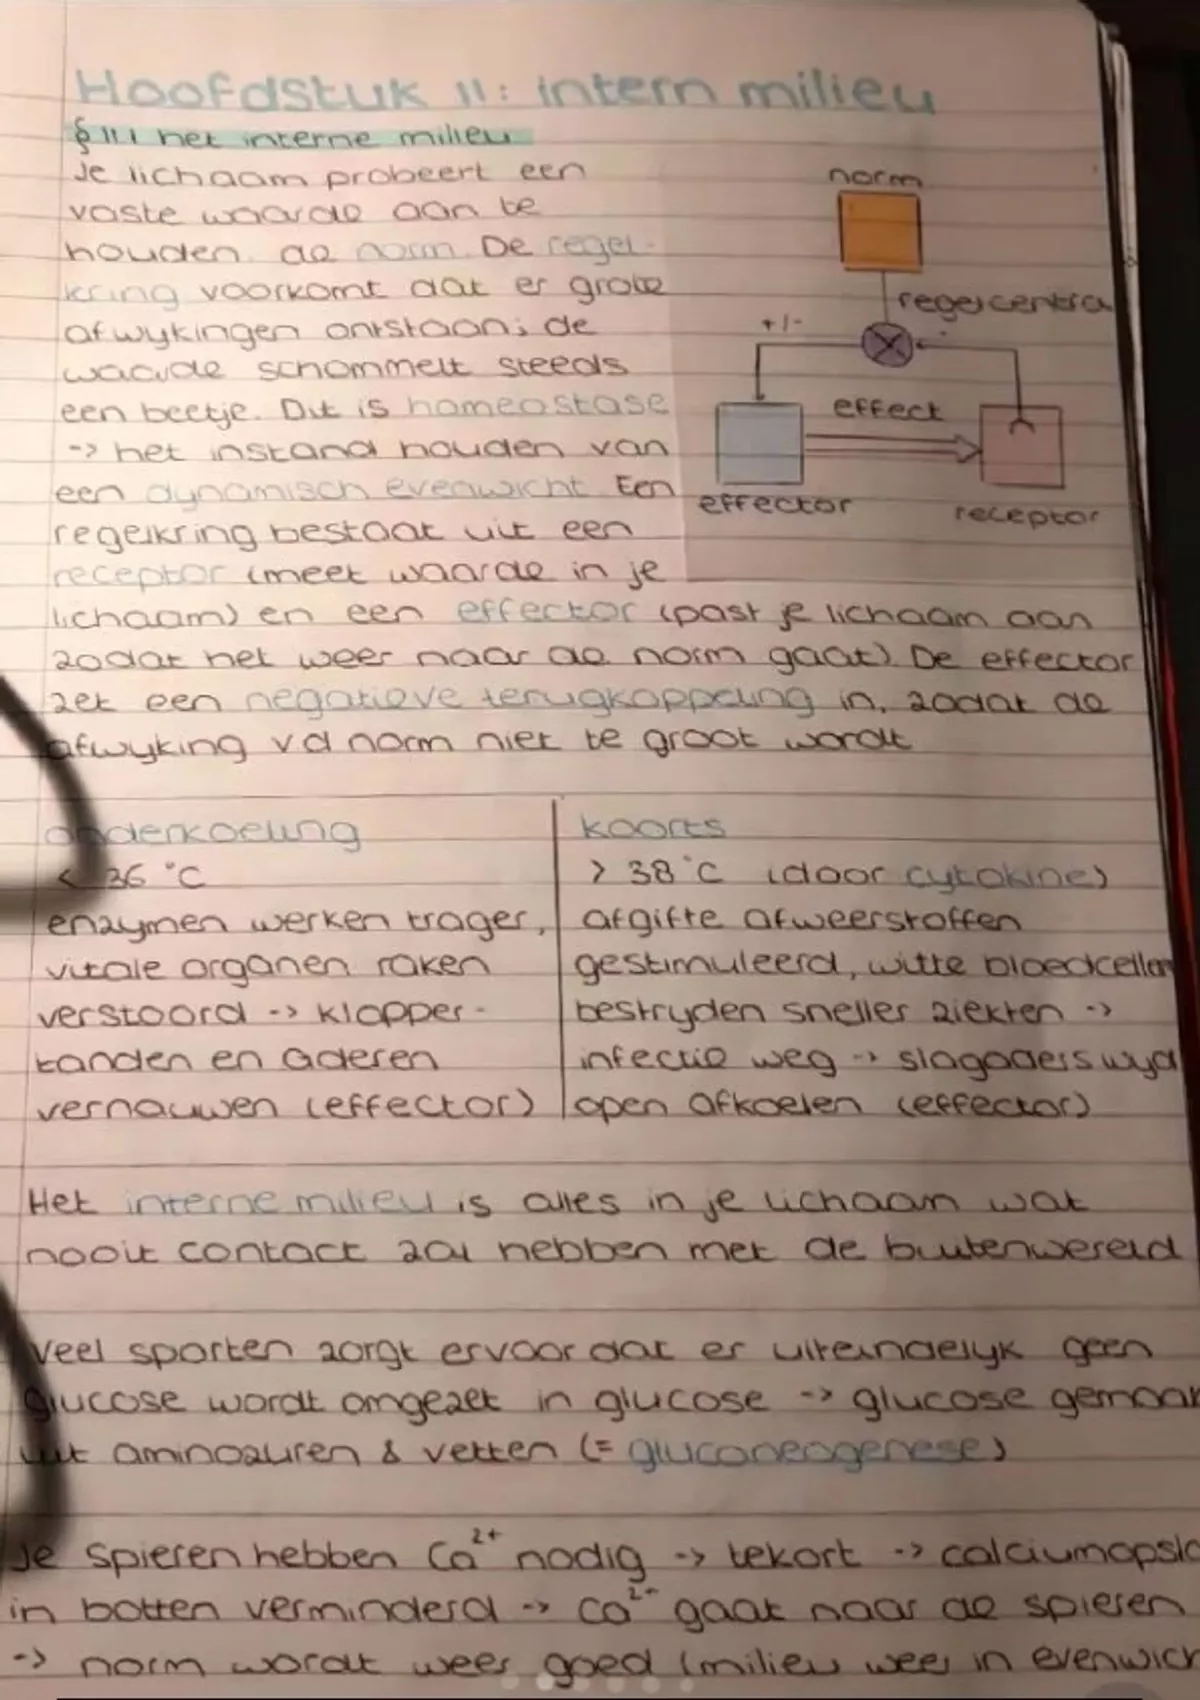 Hoofdstuk 11: intern milieu
§ 11.1 het interne milieu
Je lichaam probeert een
vaste waarde aan te
houden, de norm. De regel-
kring voorkomt dat er grote
afwijkingen ontstaan; de
waarde schommelt steeds
een beetje. Dit is homeostase
-> het instand houden van
een dynamisch evenwicht. Een
regelkring bestaat uit een
receptor (meet waarde in je
lichaam) en een effector (past je lichaam aan
zodat het weer naar de norm gaat). De effector
zet een negatieve terugkoppeling in, zodat de
afwijking vd norm niet te groot wordt
norm
regelcentra
+/-
effect
effector
receptor
onderkoeling
< 36 °C
enzymen werken trager,
vitale organen raken
verstoord -> klapper-
tanden en aderen
vernauwen (effector)
koorts
> 38 °C (door cytokine)
afgifte afweerstoffen
gestimuleerd, witte bloedcellen
bestrijden sneller ziekten ->
infectie weg -> slagaders wijd
open afkoelen (effector)
Het interne milieu is alles in je lichaam wat
nooit contact zal hebben met de buitenwereld
Veel sporten zorgt ervoor dat er uiteindelijk geen
glucose wordt omgezet in glucose -> glucose gemaak
uit aminozuren & vetten (= gluconeogenese)
Je spieren hebben Ca²⁺ nodig -> tekort -> calciumopsla
in botten verminderd -> Ca²⁺ gaat naar de spieren
-> norm wordt weer goed (milieu weer in evenwich